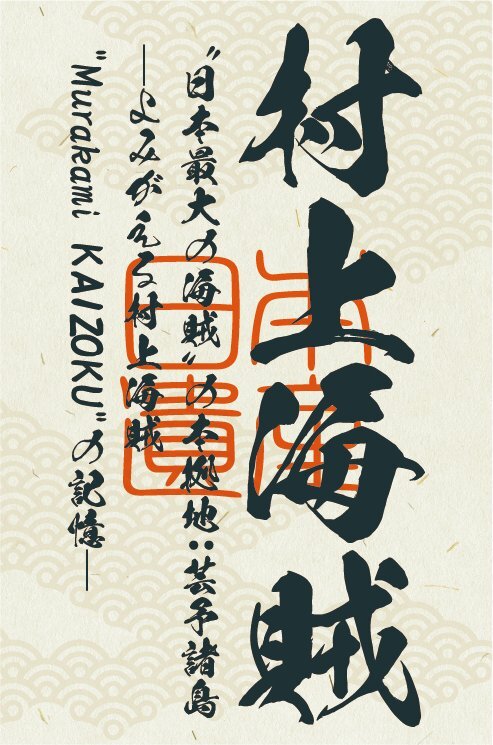 村上海賊
“日本最大の海賊”の本拠地:芸予諸島
―よみがえる村上海賊
“Murakami KAIZOKU”の記憶―
日本遺産